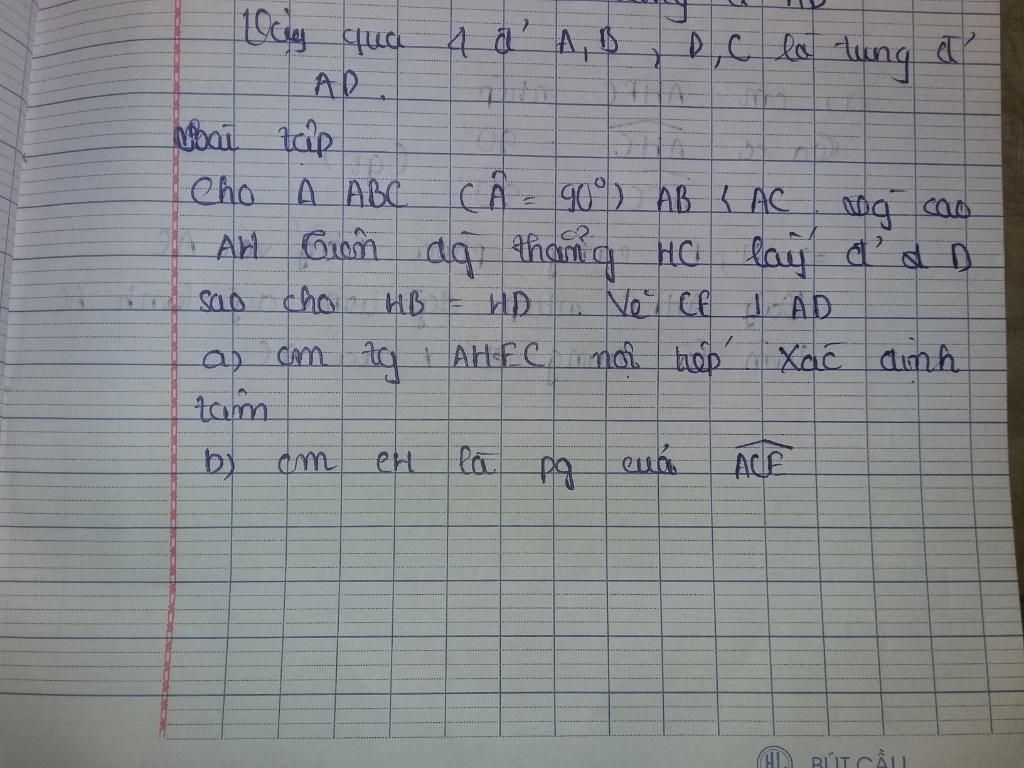 qua 4 đ' A, B, D, C là tung đ'
AD.
Bài tập
Cho Δ ABC (Â = 90°) AB < AC. đg cao
AH trên đg thẳng HC lấy đ' D
sao cho HB = HD. Vẽ CE ⊥ AD
a) cm tg AHEC nội tiếp Xác định
tâm
b) cm CH là pg của ACE
HL BÚT CẦU